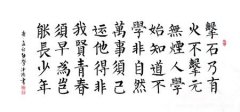 擊石乃有
火不擊元
無煙人學
始知道不
學非自然
萬事須己
運他得非
我賢青春
須早為豈
能長少年